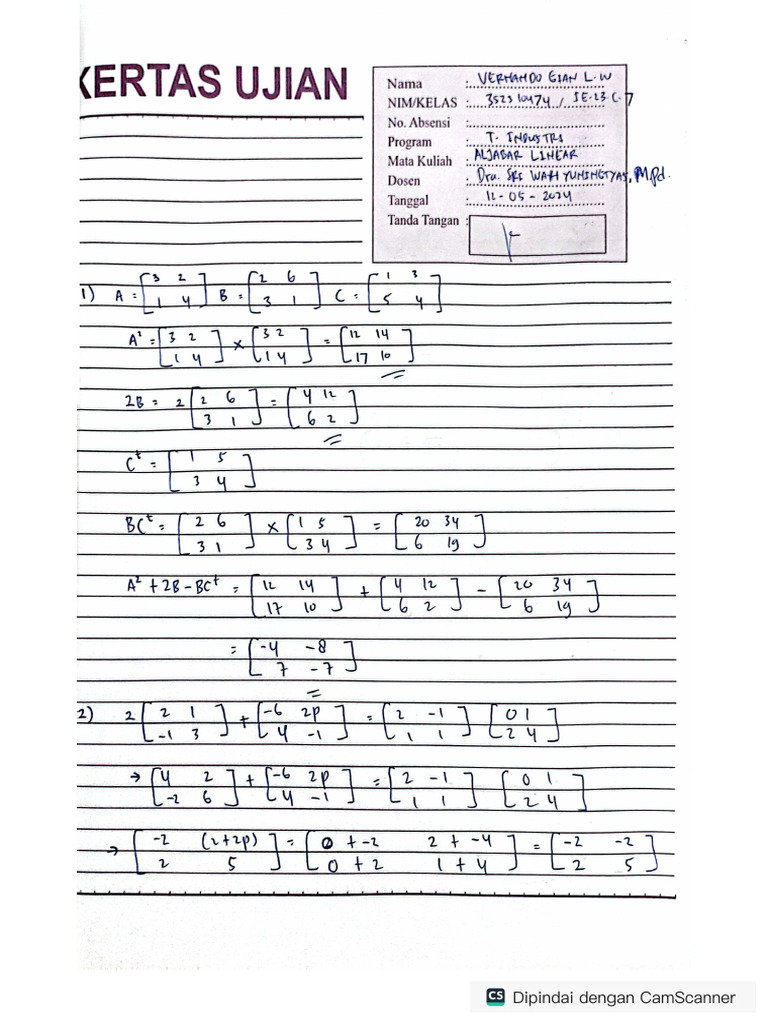 KERTAS UJIAN
Nama : VERNANDO GIAN L.W
NIM/KELAS : 352310474 / IE-23-C-7
No. Absensi :
Program : T. INDUSTRI
Mata Kuliah : ALJABAR LINEAR
Dosen : Dra. SRI WAHYUNINGTYAS, M.Pd.
Tanggal : 12 - 05 - 2024
Tanda Tangan :
1) A = [3 2; 1 4] B = [2 6; 3 1] C = [1 3; 5 4]
A² = [3 2; 1 4] × [3 2; 1 4] = [12 14; 17 10]
2B = 2 [2 6; 3 1] = [4 12; 6 2]
Cᵗ = [1 5; 3 4]
BCᵗ = [2 6; 3 1] × [1 5; 3 4] = [20 34; 6 19]
A² + 2B - BCᵗ = [12 14; 17 10] + [4 12; 6 2] - [20 34; 6 19]
= [-4 -8; 7 -7]
2) 2 [2 1; -1 3] + [-6 2p; 4 -1] = [2 -1; 1 1] [0 1; 2 4]
→ [4 2; -2 6] + [-6 2p; 4 -1] = [2 -1; 1 1] [0 1; 2 4]
→ [-2 (2+2p); 2 5] = [0 + -2 2 + -4; 0 + 2 1 + 4] = [-2 -2; 2 5]
CS Dipindai dengan CamScanner